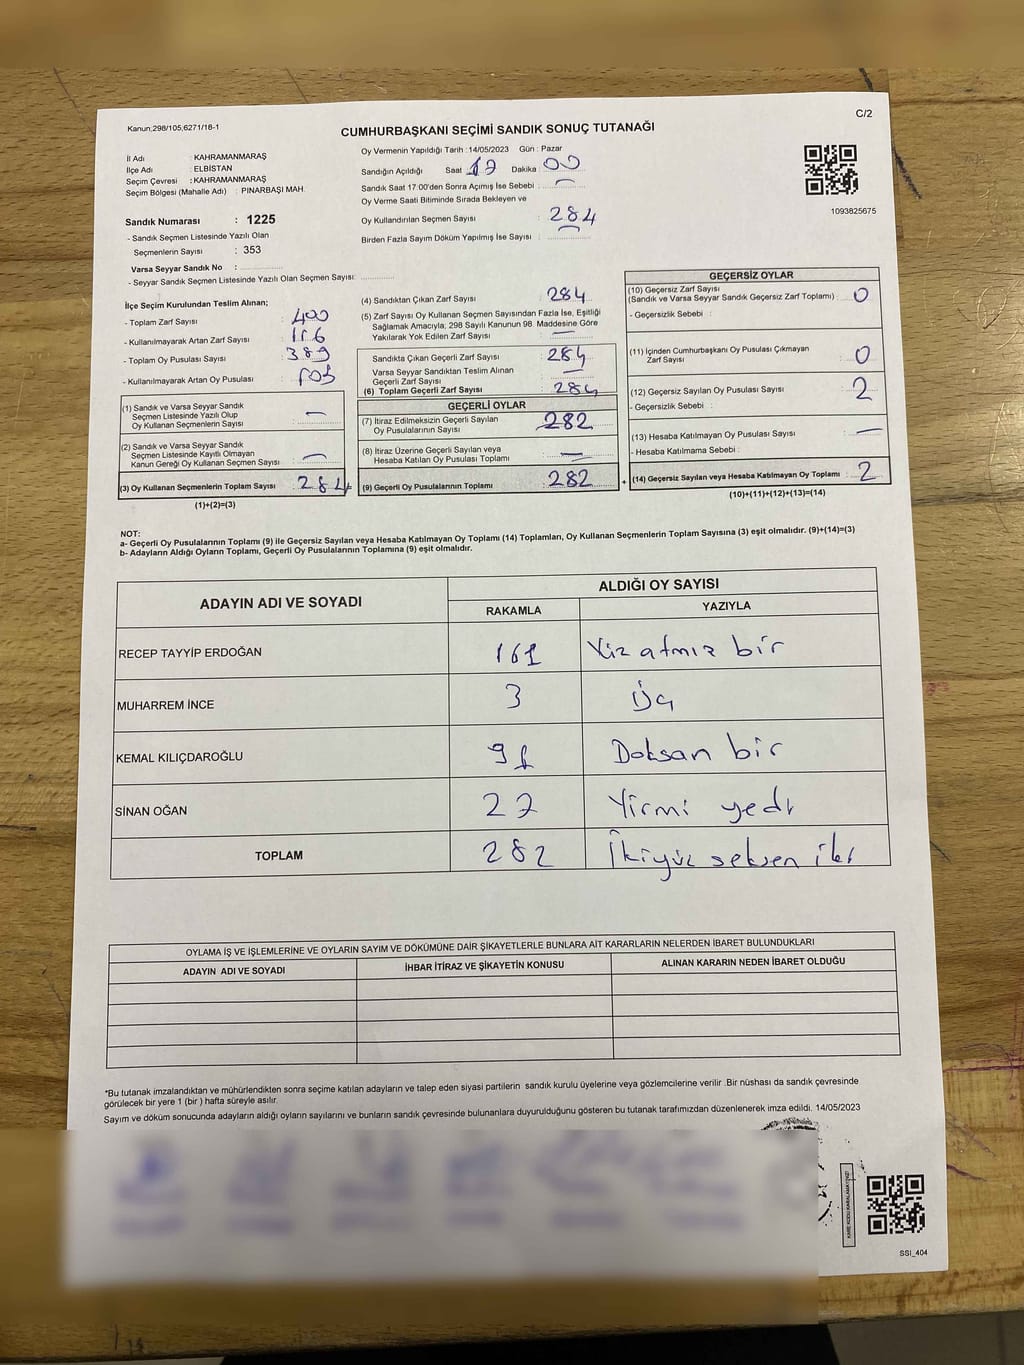 Kanun;298/105;6271/18-1
C/2
CUMHURBAŞKANI SEÇİMİ SANDIK SONUÇ TUTANAĞI
İl Adı : KAHRAMANMARAŞ
İlçe Adı : ELBİSTAN
Seçim Çevresi : KAHRAMANMARAŞ
Seçim Bölgesi (Mahalle Adı) : PINARBAŞI MAH.
Sandık Numarası : 1225
- Sandık Seçmen Listesinde Yazılı Olan
Seçmenlerin Sayısı : 353
Varsa Seyyar Sandık No :
- Seyyar Sandık Seçmen Listesinde Yazılı Olan Seçmen Sayısı:
Oy Vermenin Yapıldığı Tarih :14/05/2023 Gün : Pazar
Sandığın Açıldığı Saat 17 Dakika : 00
Sandık Saat 17:00'den Sonra Açımış İse Sebebi : —
Oy Verme Saati Bitiminde Sırada Bekleyen ve
Oy Kullandırılan Seçmen Sayısı : 284
Birden Fazla Sayım Döküm Yapılmış İse Sayısı : —
1093825675
İlçe Seçim Kurulundan Teslim Alınan;
- Toplam Zarf Sayısı : 400
- Kullanılmayarak Artan Zarf Sayısı : 116
- Toplam Oy Pusulası Sayısı : 389
- Kullanılmayarak Artan Oy Pusulası :
(1) Sandık ve Varsa Seyyar Sandık
Seçmen Listesinde Yazılı Olup
Oy Kullanan Seçmenlerin Sayısı : —
(2) Sandık ve Varsa Seyyar Sandık
Seçmen Listesinde Kayıtlı Olmayan
Kanun Gereği Oy Kullanan Seçmen Sayısı : —
(3) Oy Kullanan Seçmenlerin Toplam Sayısı : 284
(1)+(2)=(3)
(4) Sandıktan Çıkan Zarf Sayısı : 284
(5) Zarf Sayısı Oy Kullanan Seçmen Sayısından Fazla İse, Eşitliği
Sağlamak Amacıyla; 298 Sayılı Kanunun 98. Maddesine Göre
Yakılarak Yok Edilen Zarf Sayısı : —
Sandıkta Çıkan Geçerli Zarf Sayısı : 284
Varsa Seyyar Sandıktan Teslim Alınan
Geçerli Zarf Sayısı : —
(6) Toplam Geçerli Zarf Sayısı : 284
GEÇERLİ OYLAR
(7) İtiraz Edilmeksizin Geçerli Sayılan
Oy Pusulalarının Sayısı : 282
(8) İtiraz Üzerine Geçerli Sayılan veya
Hesaba Katılan Oy Pusulası Toplamı : —
(9) Geçerli Oy Pusulalarının Toplamı : 282
+
GEÇERSİZ OYLAR
(10) Geçersiz Zarf Sayısı
(Sandık ve Varsa Seyyar Sandık Geçersiz Zarf Toplamı) : 0
- Geçersizlik Sebebi :
(11) İçinden Cumhurbaşkanı Oy Pusulası Çıkmayan
Zarf Sayısı : 0
(12) Geçersiz Sayılan Oy Pusulası Sayısı : 2
- Geçersizlik Sebebi :
(13) Hesaba Katılmayan Oy Pusulası Sayısı : —
- Hesaba Katılmama Sebebi :
(14) Geçersiz Sayılan veya Hesaba Katılmayan Oy Toplamı : 2
(10)+(11)+(12)+(13)=(14)
NOT:
a- Geçerli Oy Pusulalarının Toplamı (9) ile Geçersiz Sayılan veya Hesaba Katılmayan Oy Toplamı (14) Toplamları, Oy Kullanan Seçmenlerin Toplam Sayısına (3) eşit olmalıdır. (9)+(14)=(3)
b- Adayların Aldığı Oyların Toplamı, Geçerli Oy Pusulalarının Toplamına (9) eşit olmalıdır.
ADAYIN ADI VE SOYADI ALDIĞI OY SAYISI
RAKAMLA YAZIYLA
RECEP TAYYİP ERDOĞAN 161 Yüz atmış bir
MUHARREM İNCE 3 Üç
KEMAL KILIÇDAROĞLU 91 Doksan bir
SİNAN OĞAN 27 Yirmi yedi
TOPLAM 282 İkiyüz seksen iki
OYLAMA İŞ VE İŞLEMLERİNE VE OYLARIN SAYIM VE DÖKÜMÜNE DAİR ŞİKAYETLERLE BUNLARA AİT KARARLARIN NELERDEN İBARET BULUNDUKLARI
ADAYIN ADI VE SOYADI İHBAR İTİRAZ VE ŞİKAYETİN KONUSU ALINAN KARARIN NEDEN İBARET OLDUĞU
*Bu tutanak imzalandıktan ve mühürlendikten sonra seçime katılan adayların ve talep eden siyasi partilerin sandık kurulu üyelerine veya gözlemcilerine verilir .Bir nüshası da sandık çevresinde
görülecek bir yere 1 (bir ) hafta süreyle asılır.
Sayım ve döküm sonucunda adayların aldığı oyların sayılarını ve bunların sandık çevresinde bulunanlara duyurulduğunu gösteren bu tutanak tarafımızdan düzenlenerek imza edildi. 14/05/2023
KARE KODU KARALAMAYINIZ!
SSI_404